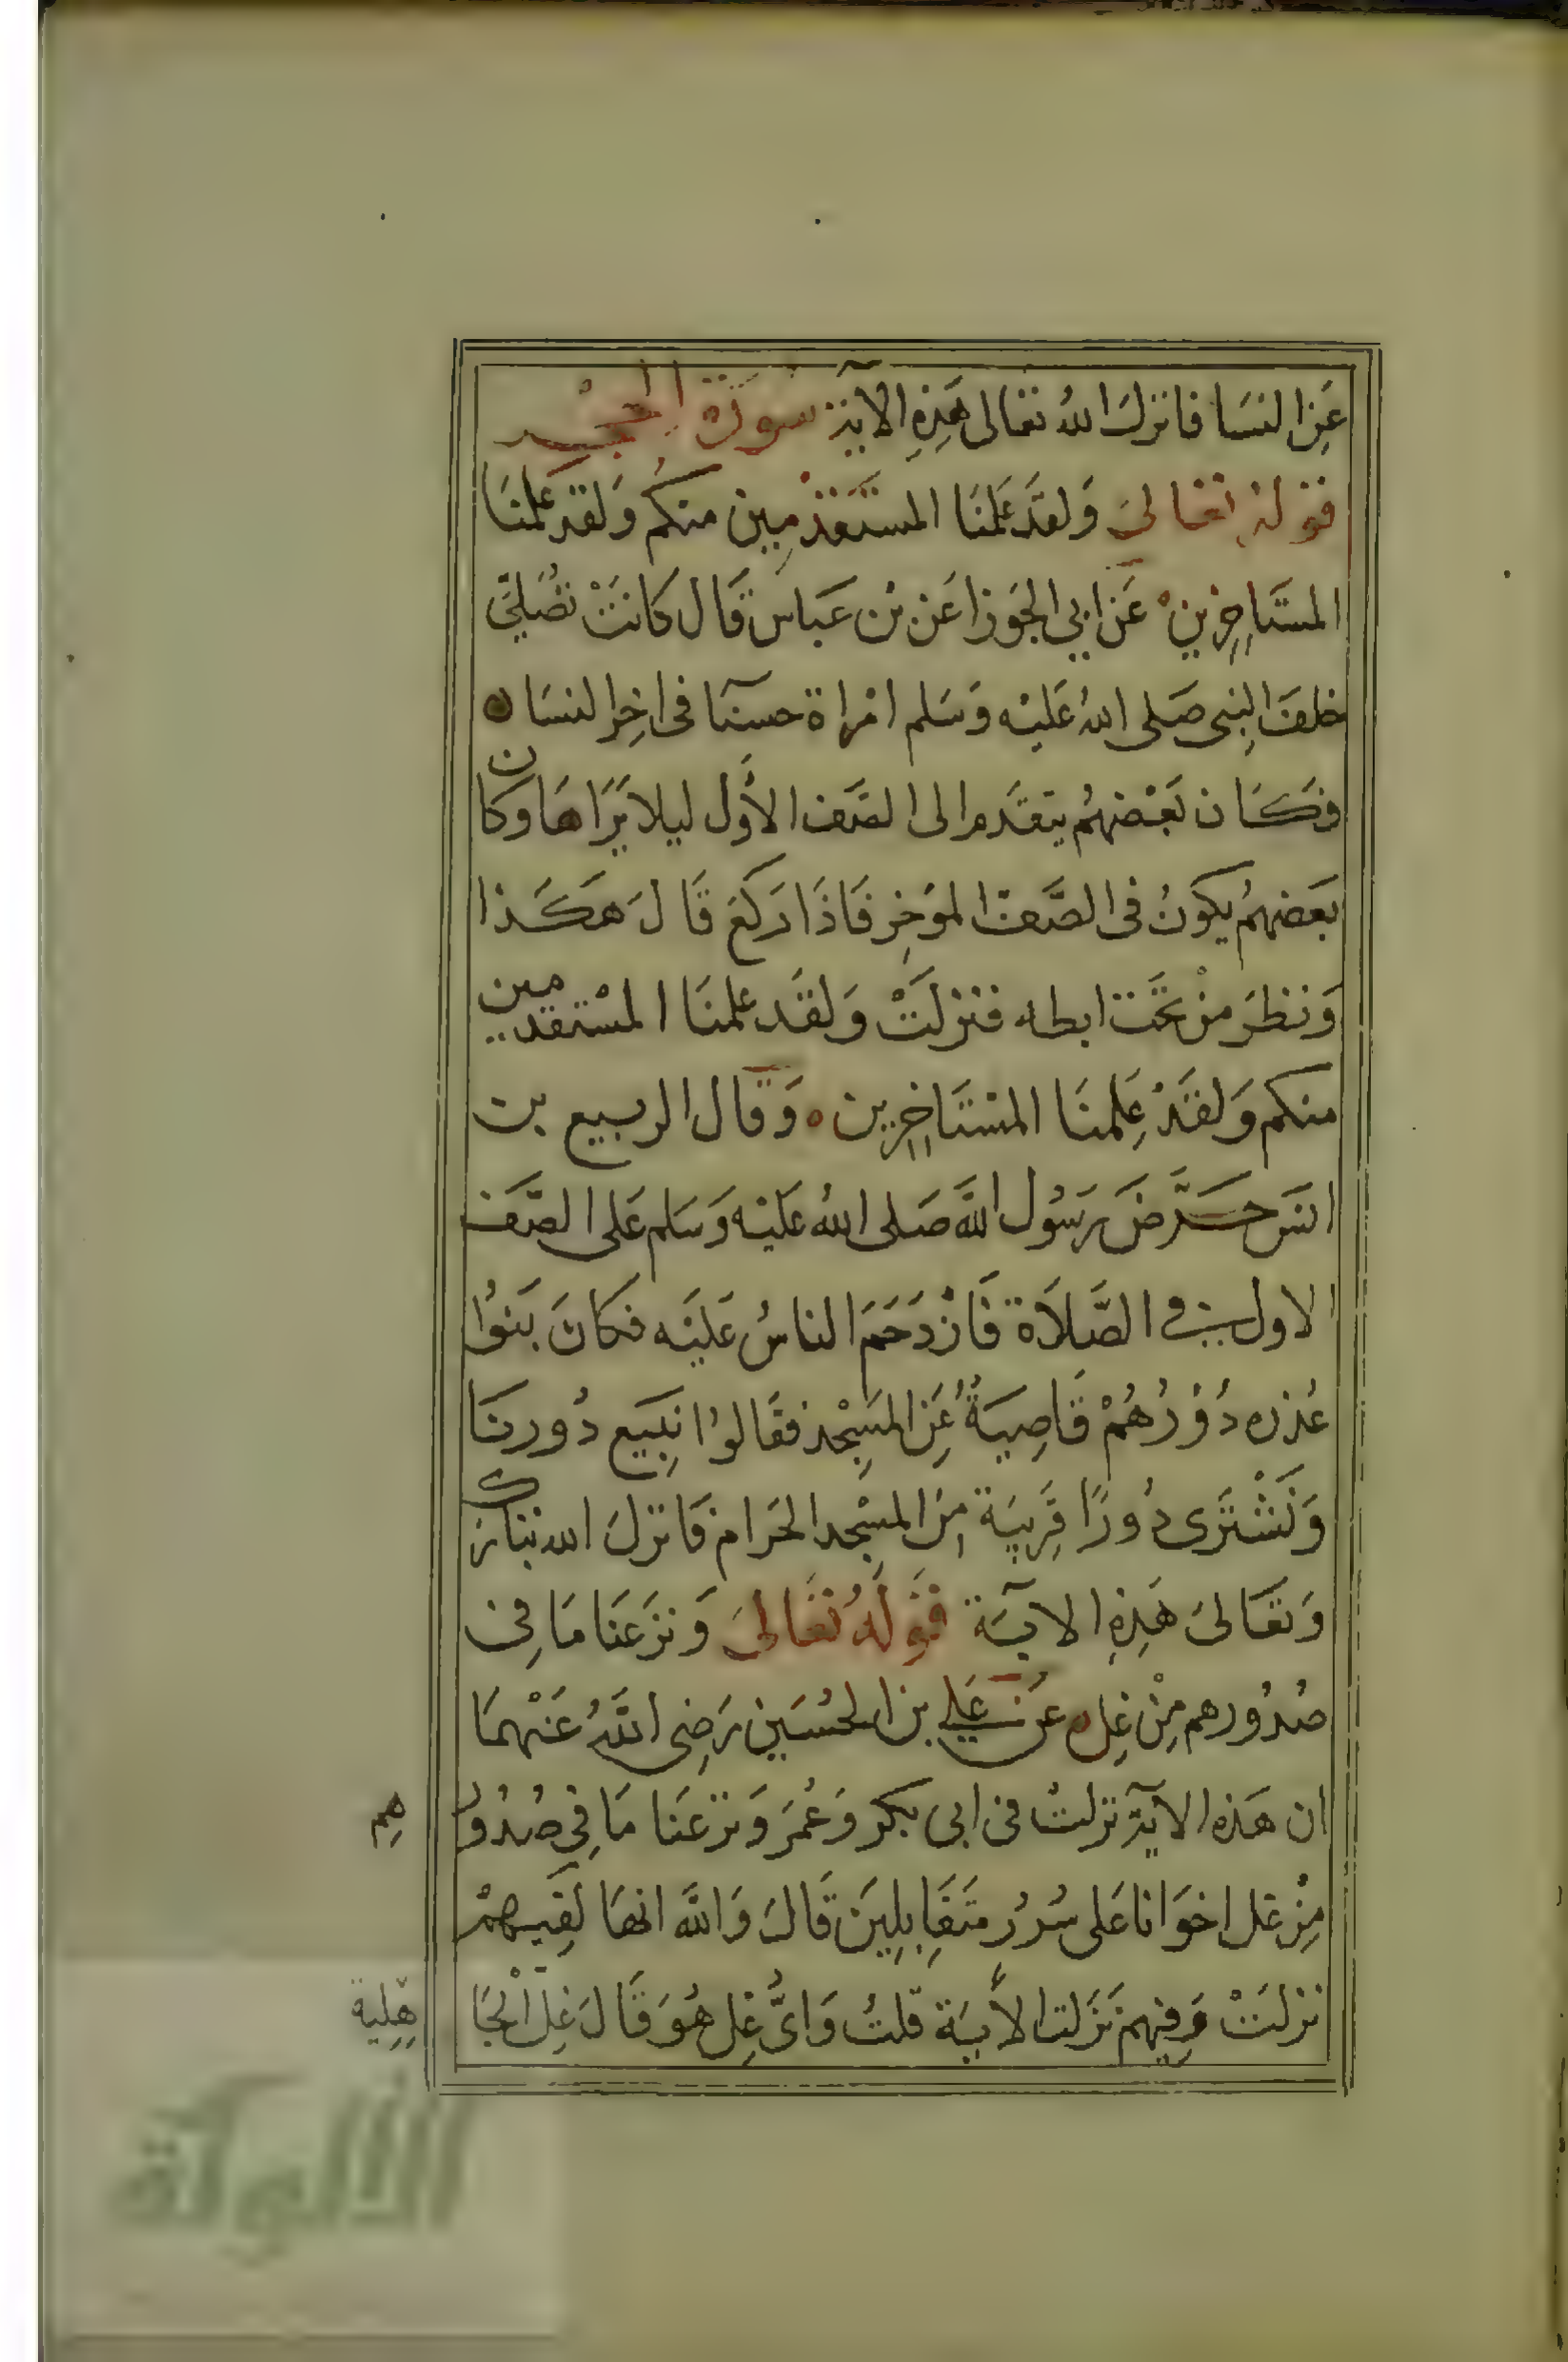 عَنِ النسَا فانزلَ اللهُ تعالى هَذِهِ الآية سورَة الحجر
قوله تعالىَ وَلقدَ عَلمنَا المستقدمِين منكم وَلقد عَلمنَا
المستَاخِرِين عَن ابي الجوزا عَن بن عَباس قَال كَانَتْ تصَلي
خلفَ النبِي صَلى اللهُ عَليْه وَسَلم امْراة حسنآ في اخِر النسَا
فكَان بَعْضهُم يتقدَم الى الصَف الأول ليلا يَرَاهَا وكان
بَعضهُم يكونُ في الصَّف الموَخِر فَاذَا رَكعَ قَالَ هَكَذا
وَنظرَ مِنْ تحَت ابطه فنزلَتْ وَلقَد علمنَا المسْتقدمين
منكم وَلقَدْ عِلمنَا المسْتَاخِرِين ه وَقال الربيع بن
انَس حَرَّضَ رَسُول اللَّه صَلى اللهُ عَليْه وَسَلم عَلى الصَف
الاول في الصَّلاَة فَازْدَحَمَ الناسُ عَليَه فكَانَ بَنوُا
عُذره دُوْرُهُمْ قَاصِيَةُ عَنِ المَسِجْد فقَالوُا نَبِيَع دُورنَا
وَنَشْتَرى دُورًا قَرِيبَة مِنَ المسْجِد الحَرام فَانزلَ الله تبَارك
وَتعَالىَ هَذِهِ الآيَة قوِلَهُ تعَالىَ وَنزَعنَا مَا فِي
صُدُورهم مِنْ غِل ه عَن عَلي بن الحُسَين رَضِى اللَّهُ عَنْهمَا
ان هَذه الآيَة نزلتُ فى ابى بكر وَعُمَر وَنزعَنا مَا فِي صُدُورُ
هِم
مِنْ غل اخوَانا عَلى سُرُر متَقَابِلِيَن قَالَ وَاللَّه انهَا لفَيِهمْ
نزلَتْ وَفِيهم نَزَلت الأيَة قلتُ وَاىُّ غِل هُوَ قَالَ غِل الْجَا
هِلِية
الألوكة